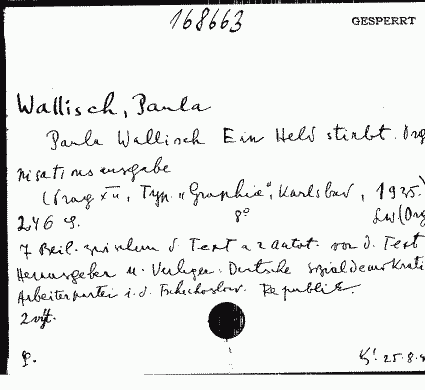 168663
GESPERRT
Wallisch, Paula
Paula Wallisch Ein Held stirbt. Org
nisationsausgabe
(Prag XII, Typ. „Graphie", Karlsbad, 1935.)
246 S. 8° Lw (Org
7 Beil. zwischen d. Text u 2 autot. vor d. Text
Herausgeber u. Verleger: Deutsche sozialdemokrati
Arbeiterpartei i. d. Tschechoslow. Republik.
25.8.